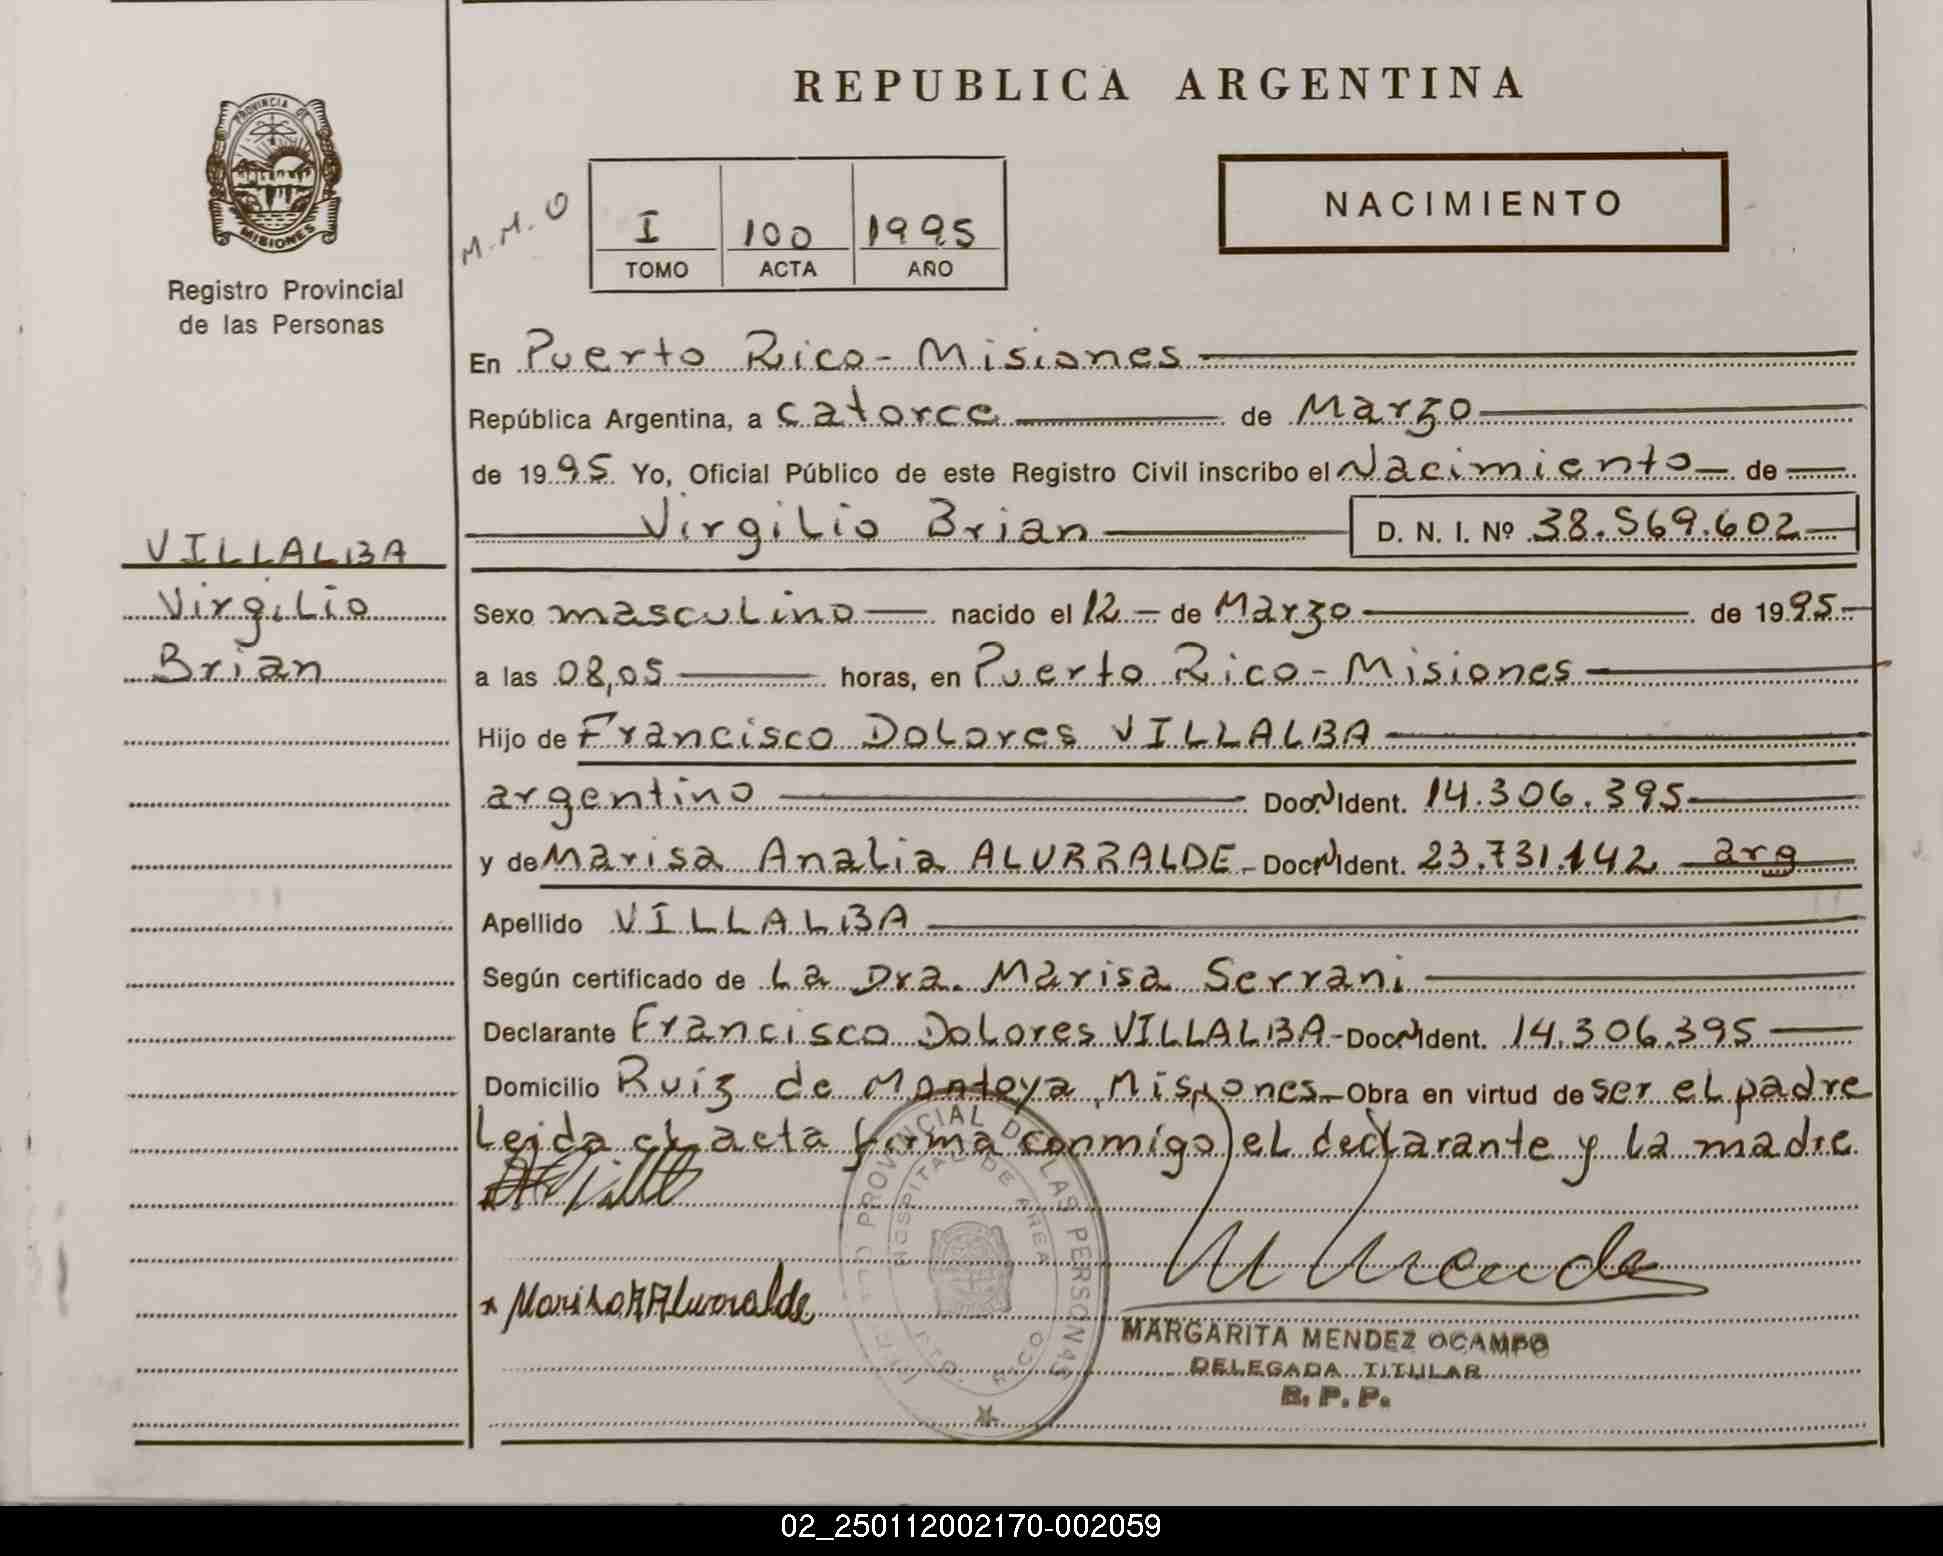 REPUBLICA ARGENTINA
PROVINCIA DE
MISIONES
Registro Provincial
de las Personas
M.M.O
I 100 1995
TOMO ACTA AÑO
NACIMIENTO
En Puerto Rico - Misiones
República Argentina, a catorce de Marzo
de 1995 Yo, Oficial Público de este Registro Civil inscribo el Nacimiento de
Virgilio Brian D. N. I. Nº 38.569.602
VILLALBA
Virgilio
Brian
Sexo masculino nacido el 12 de Marzo de 1995
a las 08,05 horas, en Puerto Rico - Misiones
Hijo de Francisco Dolores VILLALBA
argentino Doc. N Ident. 14.306.395
y de Marisa Analia ALURRALDE - Doc. N Ident. 23.731.142 arg
Apellido VILLALBA
Según certificado de La Dra. Marisa Serrani
Declarante Francisco Dolores VILLALBA - Doc. N Ident. 14.306.395
Domicilio Ruiz de Montoya, Misiones - Obra en virtud de ser el padre
Leida el acta firma conmigo el declarante y la madre
PROVINCIAL DE LAS PERSONAS
HOSPITAL DE AREA
PTO. RICO
Marisa A Alurralde
MARGARITA MENDEZ OCAMPO
DELEGADA TITULAR
R. P. P.
02_250112002170-002059